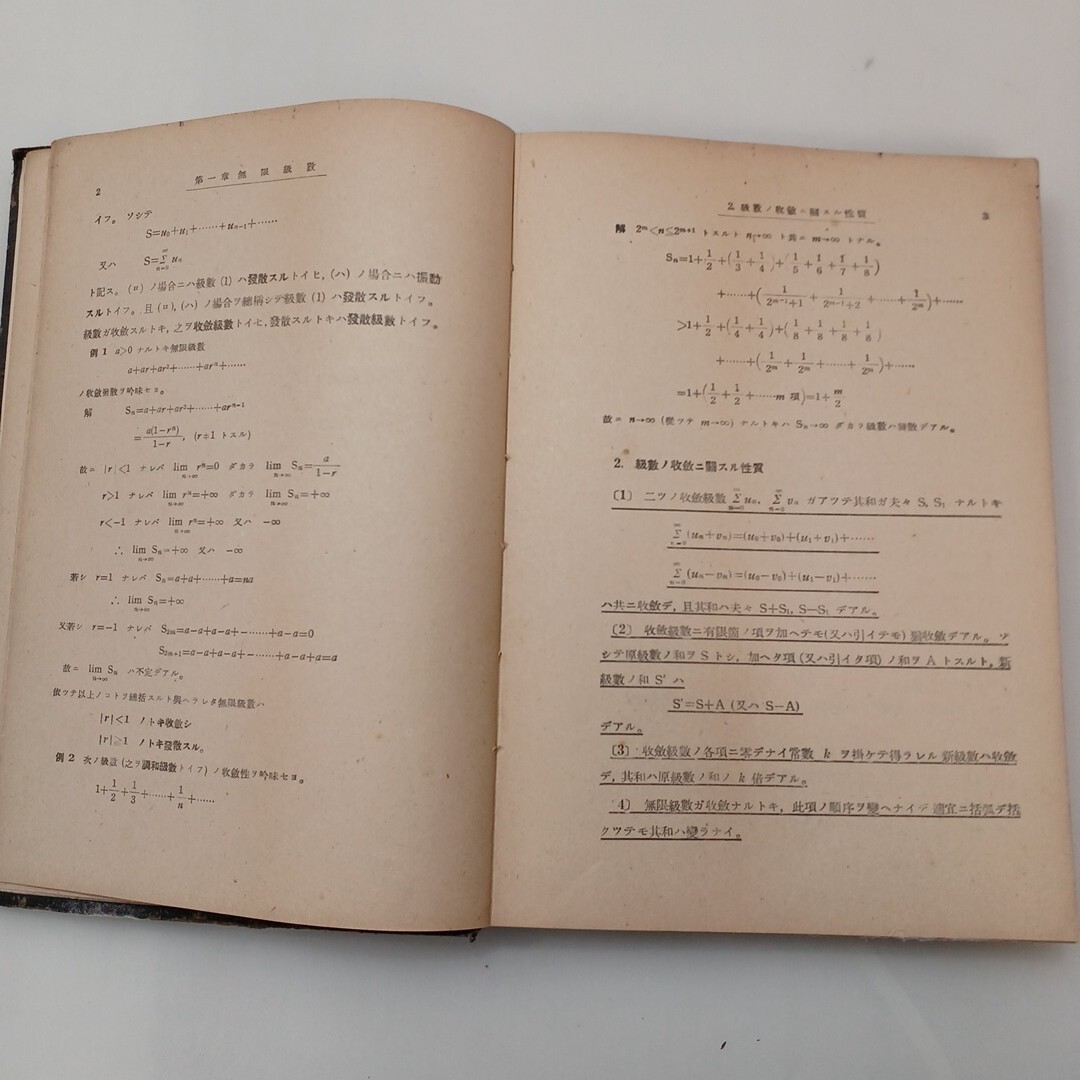 2
第一章 無限級數
イフ。ソシテ
S=u₀+u₁+……+uₙ₋₁+……
又ハ S=∑_{n=0}^{∞} uₙ
ト記ス。(ロ) ノ場合ニハ級數 (1) ハ發散スルトイヒ, (ハ) ノ場合ニハ振動
スルトイフ。且 (ロ), (ハ) ノ場合ヲ總稱シテ級數 (1) ハ發散スルトイフ。
級數ガ收斂スルトキ, 之ヲ收斂級數トイヒ, 發散スルトキハ發散級數トイフ。
例 1 a>0 ナルトキ無限級數
a+ar+ar²+……+arⁿ+……
ノ收斂發散ヲ吟味セヨ。
解 Sₙ=a+ar+ar²+……+arⁿ⁻¹
=a(1−rⁿ)/(1−r), (r≠1 トスル)
故ニ |r|<1 ナレバ lim_{n→∞} rⁿ=0 ダカラ lim_{n→∞} Sₙ=a/(1−r)
r>1 ナレバ lim_{n→∞} rⁿ=+∞ ダカラ lim_{n→∞} Sₙ=+∞
r<−1 ナレバ lim_{n→∞} rⁿ=+∞ 又ハ −∞
∴ lim_{n→∞} Sₙ=+∞ 又ハ −∞
若シ r=1 ナレバ Sₙ=a+a+……+a=na
∴ lim_{n→∞} Sₙ=+∞
又若シ r=−1 ナレバ S₂ₘ=a−a+a−a+−……+a−a=0
S₂ₘ₊₁=a−a+a−a+−……+a−a+a=a
故ニ lim_{n→∞} Sₙ ハ不定デアル。
依ツテ以上ノコトヲ總括スルト與ヘラレタ無限級數ハ
|r|<1 ノトキ收斂シ
|r|≧1 ノトキ發散スル。
例 2 次ノ級數 (之ヲ調和級數トイフ) ノ收斂性ヲ吟味セヨ。
1+1/2+1/3+……+1/n+……
2. 級數ノ收斂ニ關スル性質
3
解 2ᵐ<n≦2ᵐ⁺¹ トスルト n→∞ ト共ニ m→∞ トナル。
Sₙ=1+1/2+(1/3+1/4)+(1/5+1/6+1/7+1/8)
+……+(1/(2ᵐ⁻¹+1)+1/(2ᵐ⁻¹+2)+……+1/2ᵐ)+……
>1+1/2+(1/4+1/4)+(1/8+1/8+1/8+1/8)
+……+(1/2ᵐ+1/2ᵐ+……+1/2ᵐ)+……
=1+(1/2+1/2+……m 項)=1+m/2
故ニ n→∞ (從ツテ m→∞) ナルトキハ Sₙ→∞ ダカラ級數ハ發散デアル。
2. 級數ノ收斂ニ關スル性質
〔1〕 二ツノ收斂級數 ∑_{n=0}^{∞} uₙ, ∑_{n=0}^{∞} vₙ ガアツテ其和ガ夫々 S, S₁ ナルトキ
∑_{n=0}^{∞} (uₙ+vₙ)=(u₀+v₀)+(u₁+v₁)+……
∑_{n=0}^{∞} (uₙ−vₙ)=(u₀−v₀)+(u₁−v₁)+……
ハ共ニ收斂デ, 且其和ハ夫々 S+S₁, S−S₁ デアル。
〔2〕 收斂級數ニ有限箇ノ項ヲ加ヘテモ(又ハ引イテモ) 猶收斂デアル。ソ
シテ原級數ノ和ヲ S トシ, 加ヘタ項 (又ハ引イタ項) ノ和ヲ A トスルト, 新
級數ノ和 S′ ハ
S′=S+A (又ハ S−A)
デアル。
〔3〕 收斂級數ノ各項ニ零デナイ常數 k ヲ掛ケテ得ラレル新級數ハ收斂
デ, 其和ハ原級數ノ和ノ k 倍デアル。
4〕 無限級數ガ收斂ナルトキ, 此項ノ順序ヲ變ヘナイデ適宜ニ括弧デ括
クツテモ其和ハ變ラナイ。